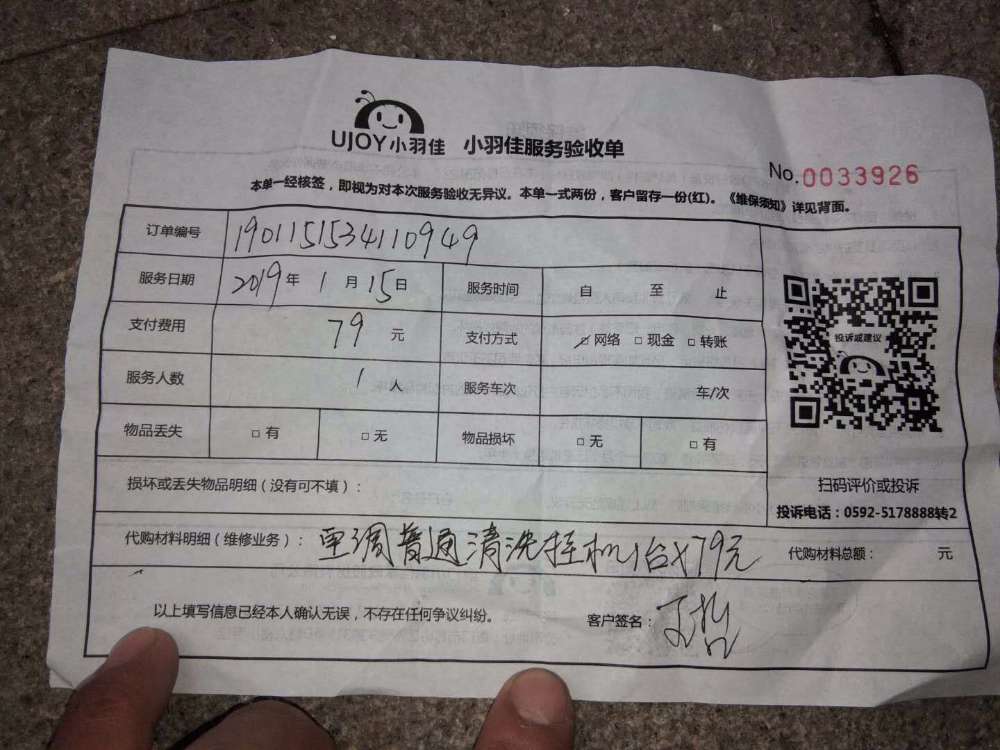 UJOY小羽佳 小羽佳服务验收单
No.0033926
本单一经核签，即视为对本次服务验收无异议。本单一式两份，客户留存一份(红)。《维保须知》详见背面。
订单编号 190115153411​0949
服务日期 2019年1月15日 服务时间 自 至 止
支付费用 79元 支付方式 ☑网络 □现金 □转账
服务人数 1人 服务车次 车/次
物品丢失 □有 □无 物品损坏 □无 □有
投诉或建议
损坏或丢失物品明细（没有可不填）：
扫码评价或投诉
投诉电话：0592-5178888转2
代购材料明细（维修业务）：空调普通清洗挂机1台×79元 代购材料总额： 元
以上填写信息已经本人确认无误，不存在任何争议纠纷。 客户签名：